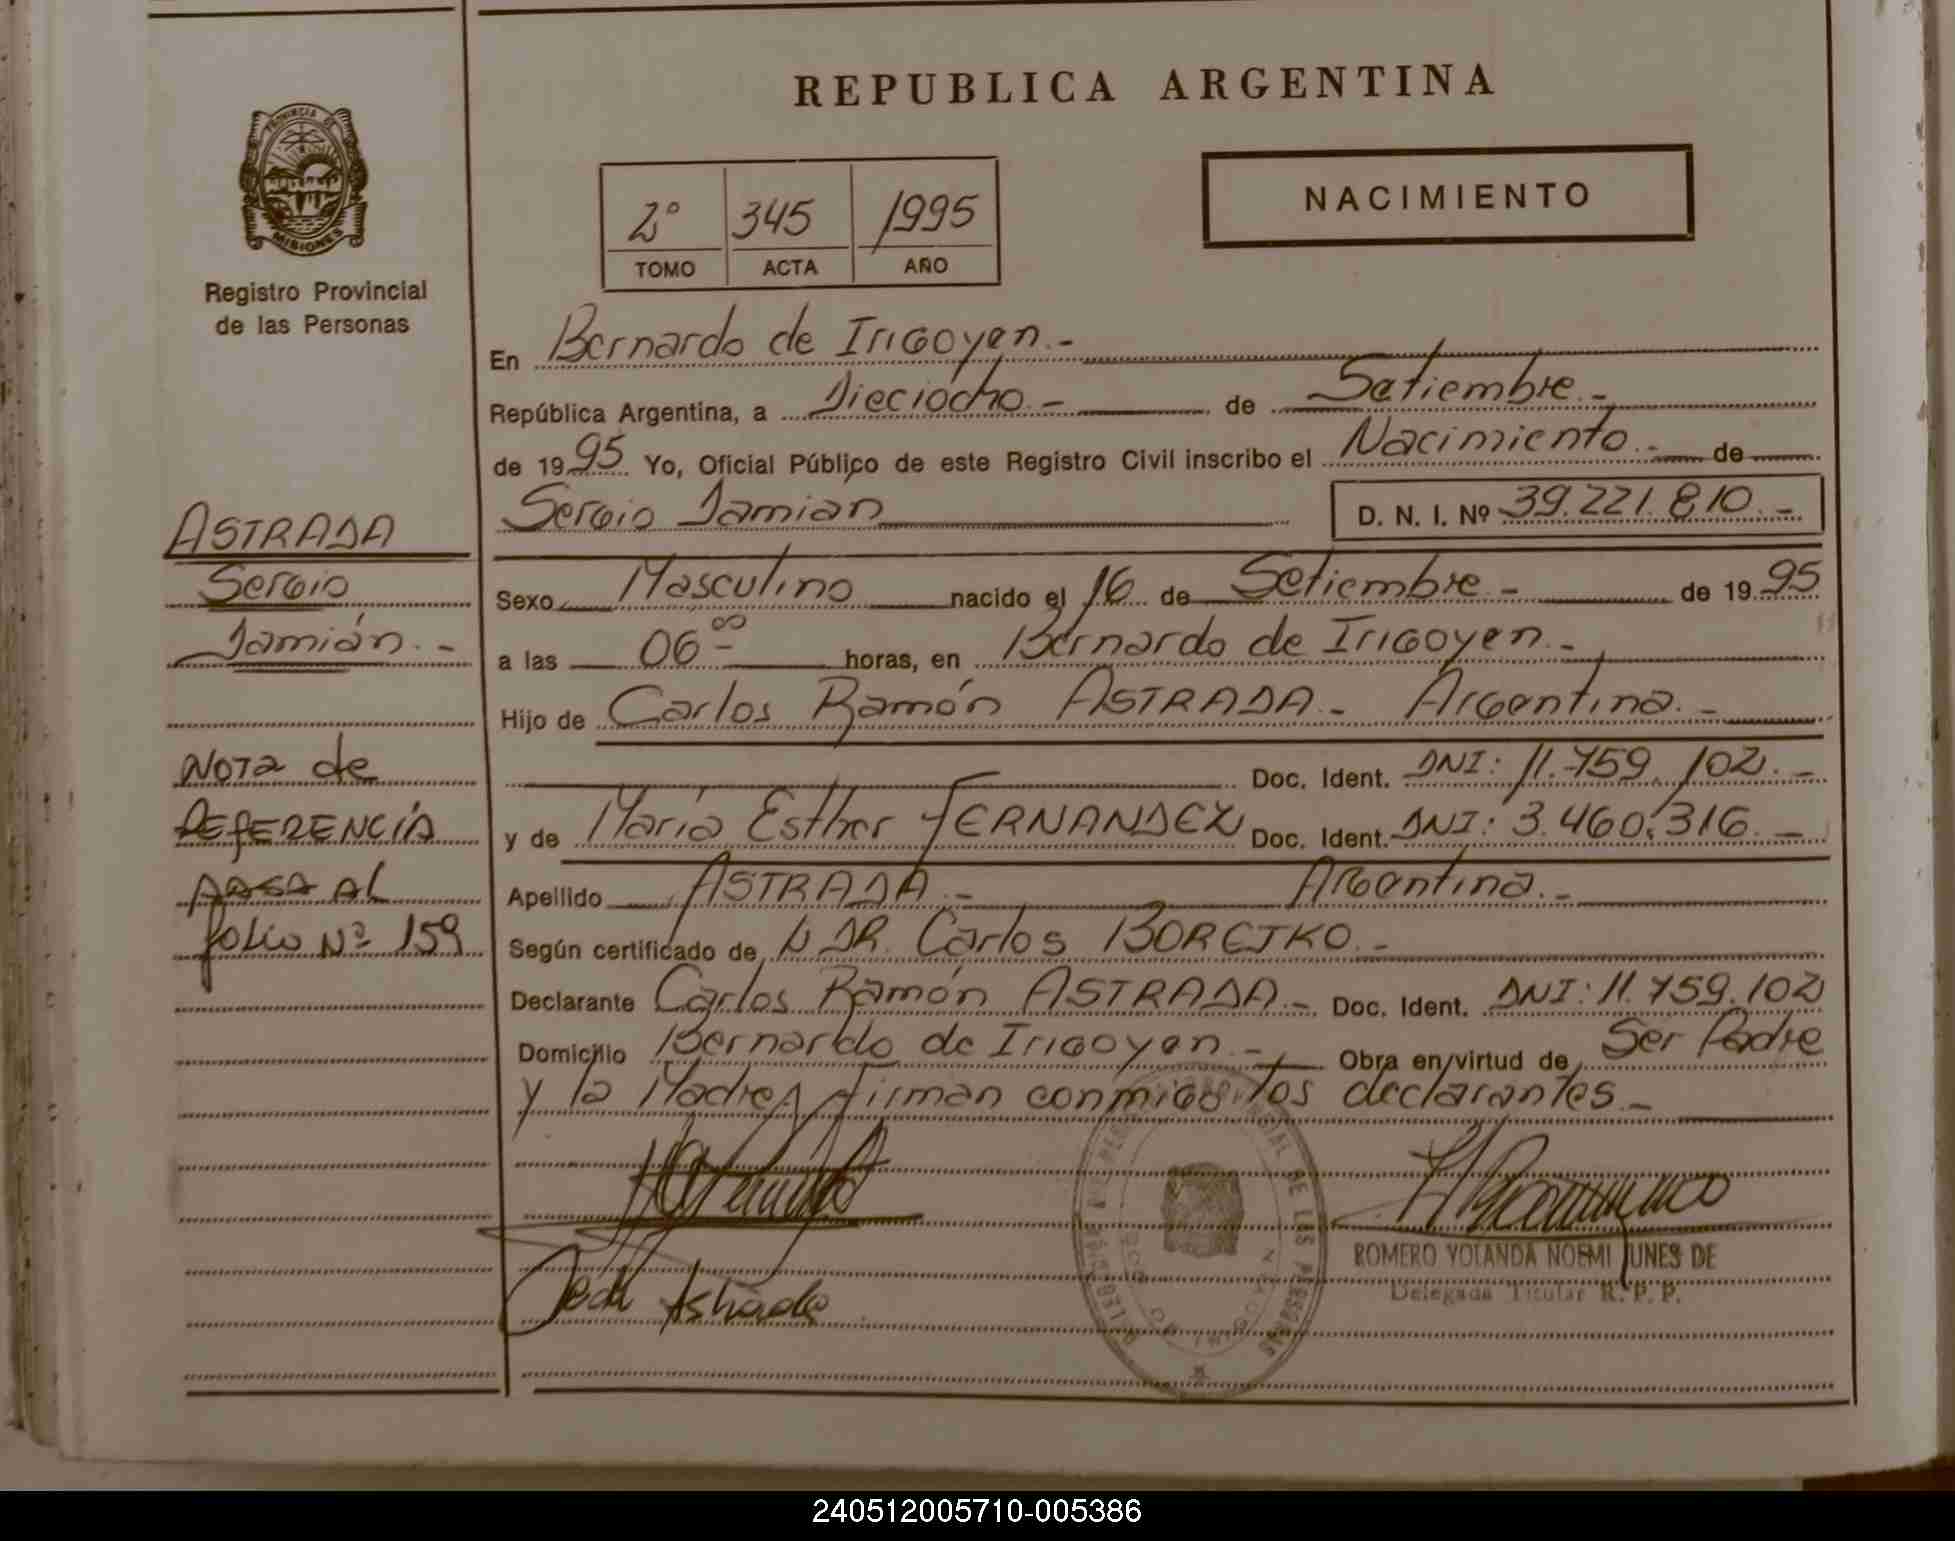 REPUBLICA ARGENTINA
PROVINCIA DE
MISIONES
Registro Provincial
de las Personas
2º 345 1995
TOMO ACTA AÑO
NACIMIENTO
En Bernardo de Irigoyen.-
República Argentina, a Dieciocho.- de Setiembre.-
de 1995 Yo, Oficial Público de este Registro Civil inscribo el Nacimiento.- de
Sergio Damian D. N. I. Nº 39.221.810.-
ASTRADA
Sergio
Damián.-
Sexo Masculino nacido el 16 de Setiembre.- de 1995
a las 06 00 horas, en Bernardo de Irigoyen.-
Hijo de Carlos Ramón ASTRADA.- Argentina.-
Doc. Ident. DNI: 11.759.102.-
y de María Esther FERNANDEZ Doc. Ident. DNI: 3.460.316.-
Apellido ASTRADA.- Argentina.-
Según certificado de DR. Carlos BOREJKO.-
Declarante Carlos Ramón ASTRADA.- Doc. Ident. DNI: 11.759.102
Domicilio Bernardo de Irigoyen.- Obra en virtud de Ser Padre
y la Madre, firman conmigo los declarantes.-
NOTA de
REFERENCIA
PASA AL
folio Nº 159
Astrada
ROMERO YOLANDA NOEMI JUNES DE
Delegada Titular R. P. P.
240512005710-005386